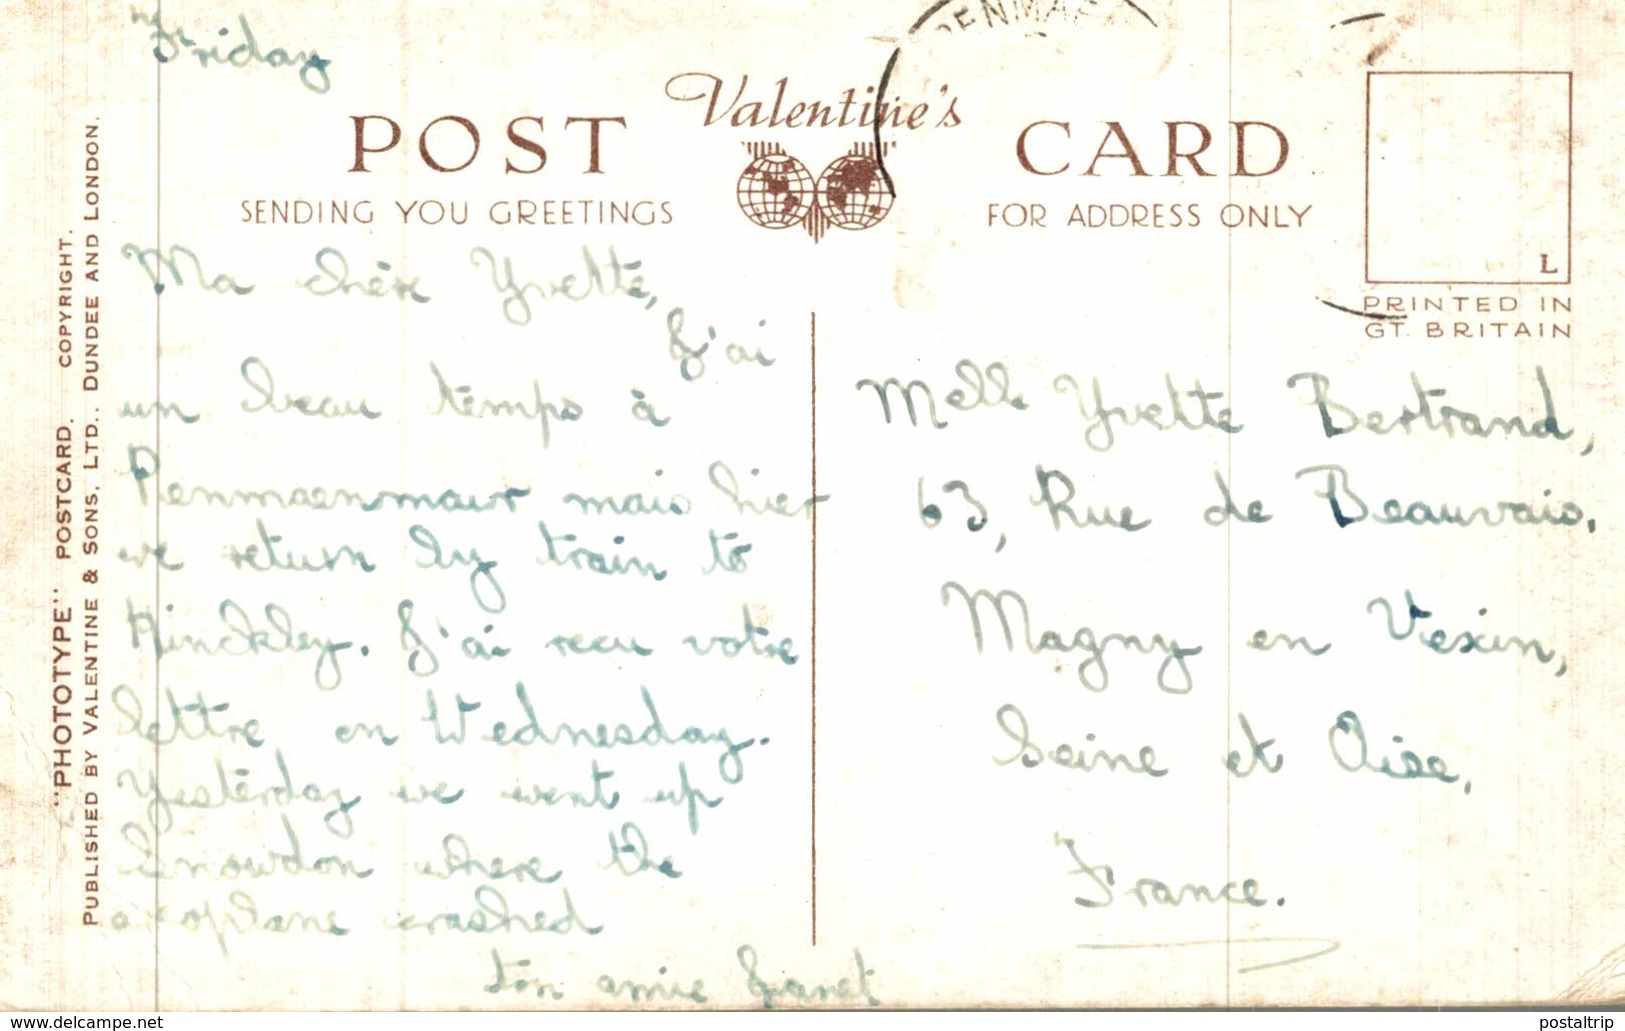 Friday
Valentine's
POST CARD
SENDING YOU GREETINGS
FOR ADDRESS ONLY
L
PRINTED IN
GT. BRITAIN
"PHOTOTYPE" POSTCARD. COPYRIGHT.
PUBLISHED BY VALENTINE & SONS, LTD., DUNDEE AND LONDON.
Ma chère Yvette,
J'ai
un beau temps à
Penmaenmawr mais hier
we return by train to
Hinckley. J'ai recu votre
lettre on Wednesday.
Yesterday we went up
Snowdon where the
aeroplane crashed
ton amie Janet
Melle Yvette Bertrand,
63, Rue de Beauvais,
Magny en Vexin,
Seine et Oise,
France.
postaltrip.com
postaltrip